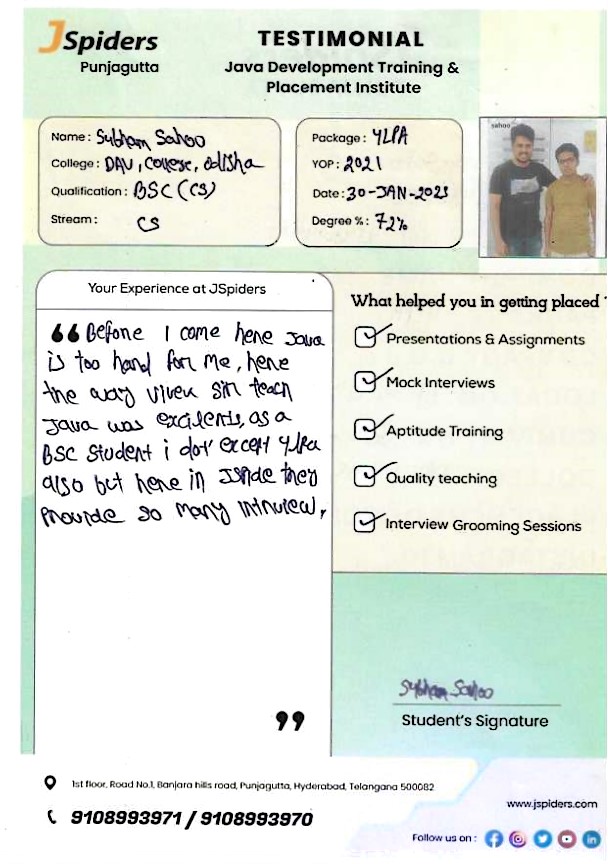 JSpiders
Punjagutta
TESTIMONIAL
Java Development Training &
Placement Institute
Name: Subham Sahoo
College: DAV, College, Odisha
Qualification: BSC (CS)
Stream: CS
Package: 4LPA
YOP: 2021
Date: 30-JAN-2023
Degree %: 72%
sahoo
Your Experience at JSpiders
“Before I come here Java
is too hard for me, here
the way vivek sir teach
Java was excilents, as a
BSC student i don't except 4lpa
also but here in JSpide they
provide so many intruiew,
”
What helped you in getting placed ?
Presentations & Assignments
Mock Interviews
Aptitude Training
Quality teaching
Interview Grooming Sessions
Subham Sahoo
Student's Signature
1st floor, Road No.1, Banjara hills road, Punjagutta, Hyderabad, Telangana 500082
9108993971 / 9108993970
www.jspiders.com
Follow us on :